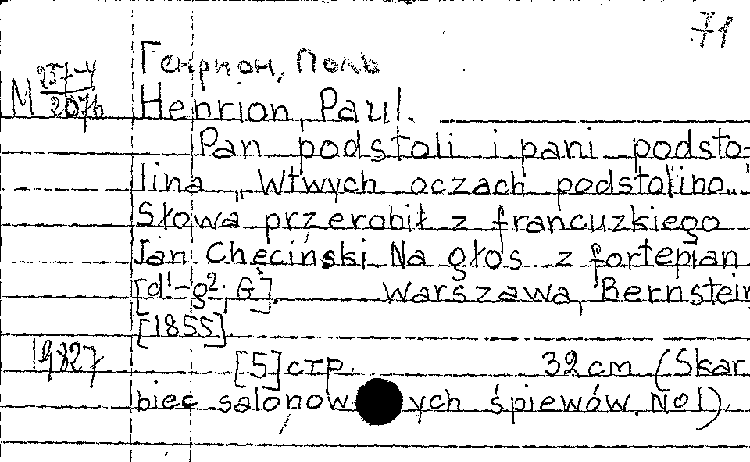 71
Генрион, Поль
M 257-4/2076
Henrion, Paul.
Pan podstoli i pani podsto-
lina „Wtwych oczach podstolino..."
Słowa przerobił z francuzkiego
Jan Chęciński Na głos z fortepian.
[d¹-g²; G]. Warszawa, Bernstein
[1855].
19827 [5] стр. 32 cm (Skar
biec salonowych śpiewów. No 1).